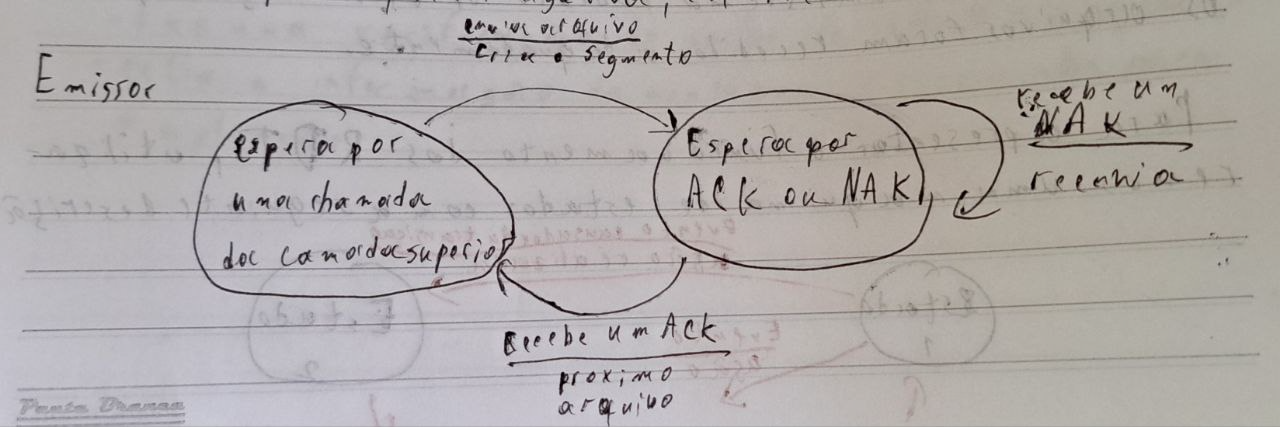 envia arquivo
Cria o segmento
Emissor
espera por
uma chamada
da camada superior
Espera por
ACK ou NAK
recebe um
NAK
reenvia
Recebe um ACK
proximo
arquivo